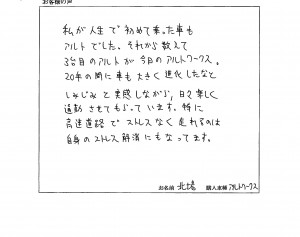 お客様の声
私が人生で初めて乗った車も
アルトでした。それから数えて
3台目のアルトが今日のアルトワークス。
20年の間に車も大きく進化したなと
しみじみと実感しながら、日々楽しく
通勤させてもらっています。特に
高速道路でストレスなく走れるのは
自身のストレス解消にもなってます。
お名前 北 購入車種 アルトワークス